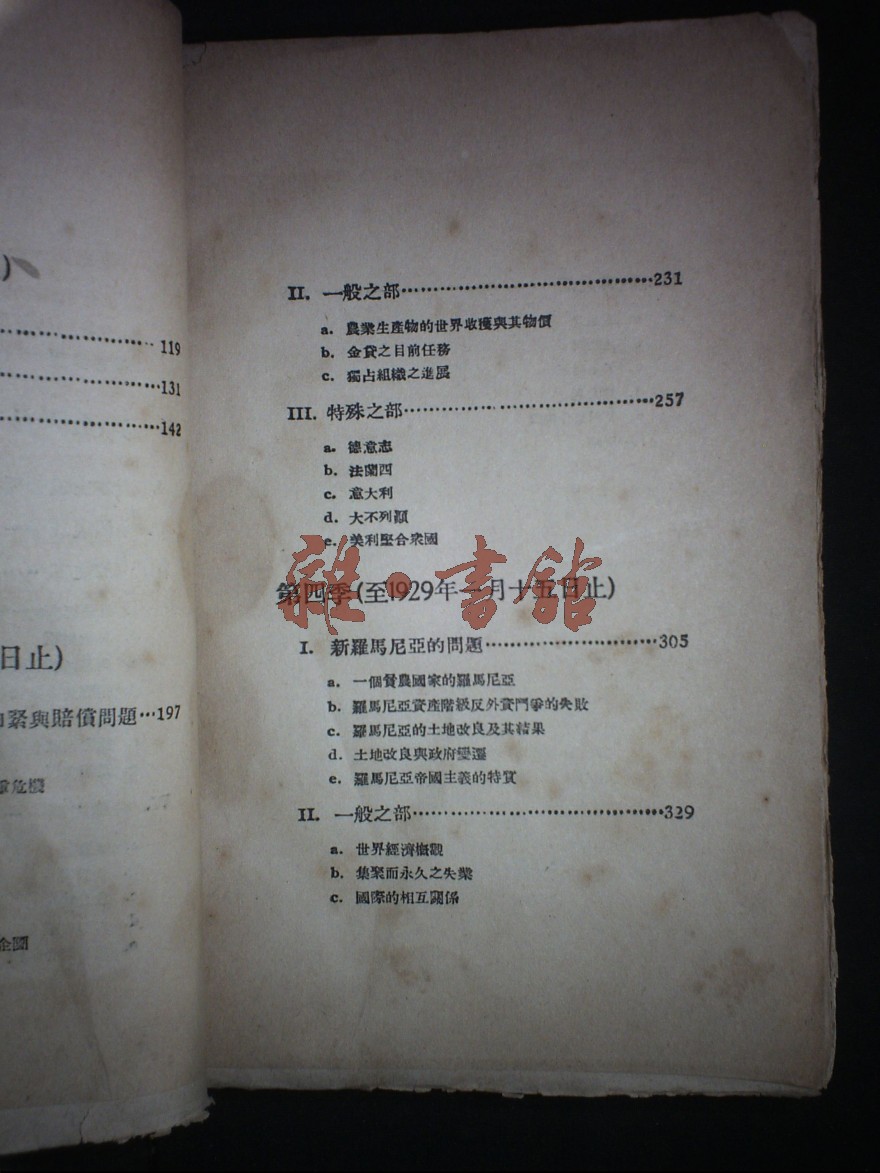 )
119
131
142
日止)
緊與賠償問題…197
危機
全國
II. 一般之部………………231
a. 農業生產物的世界收獲與其物價
b. 金貸之目前任務
c. 獨占組織之進展
III. 特殊之部………………257
a. 德意志
b. 法蘭西
c. 意大利
d. 大不列顛
e. 美利堅合衆國
雜·書館
第四季(至1929年一月十五日止)
I. 新羅馬尼亞的問題………………305
a. 一個貧農國家的羅馬尼亞
b. 羅馬尼亞資產階級反外資鬥爭的失敗
c. 羅馬尼亞的土地改良及其結果
d. 土地改良與政府變遷
e. 羅馬尼亞帝國主義的特質
II. 一般之部………………329
a. 世界經濟概觀
b. 集聚而永久之失業
c. 國際的相互關係